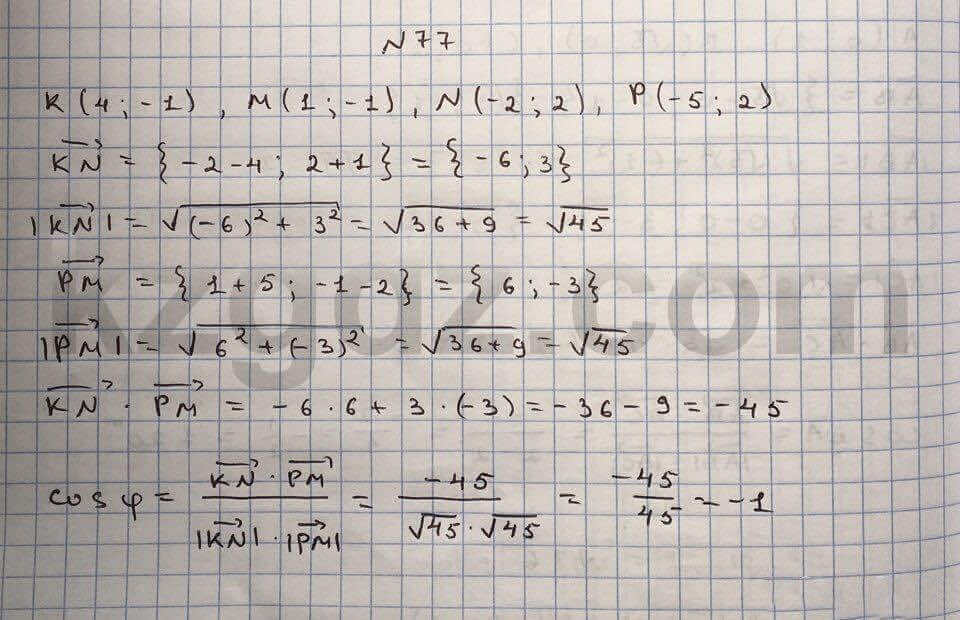 N 77
K(4; -1), M(1; -1), N(-2; 2), P(-5; 2)
KN⃗ = {-2-4; 2+1} = {-6; 3}
|KN⃗| = √((-6)² + 3²) = √(36+9) = √45
PM⃗ = {1+5; -1-2} = {6; -3}
|PM⃗| = √(6² + (-3)²) = √(36+9) = √45
KN⃗ · PM⃗ = -6·6 + 3·(-3) = -36 - 9 = -45
cos φ = (KN⃗ · PM⃗)/(|KN⃗| · |PM⃗|) = -45/(√45 · √45) = -45/45 = -1
kzgdz.com